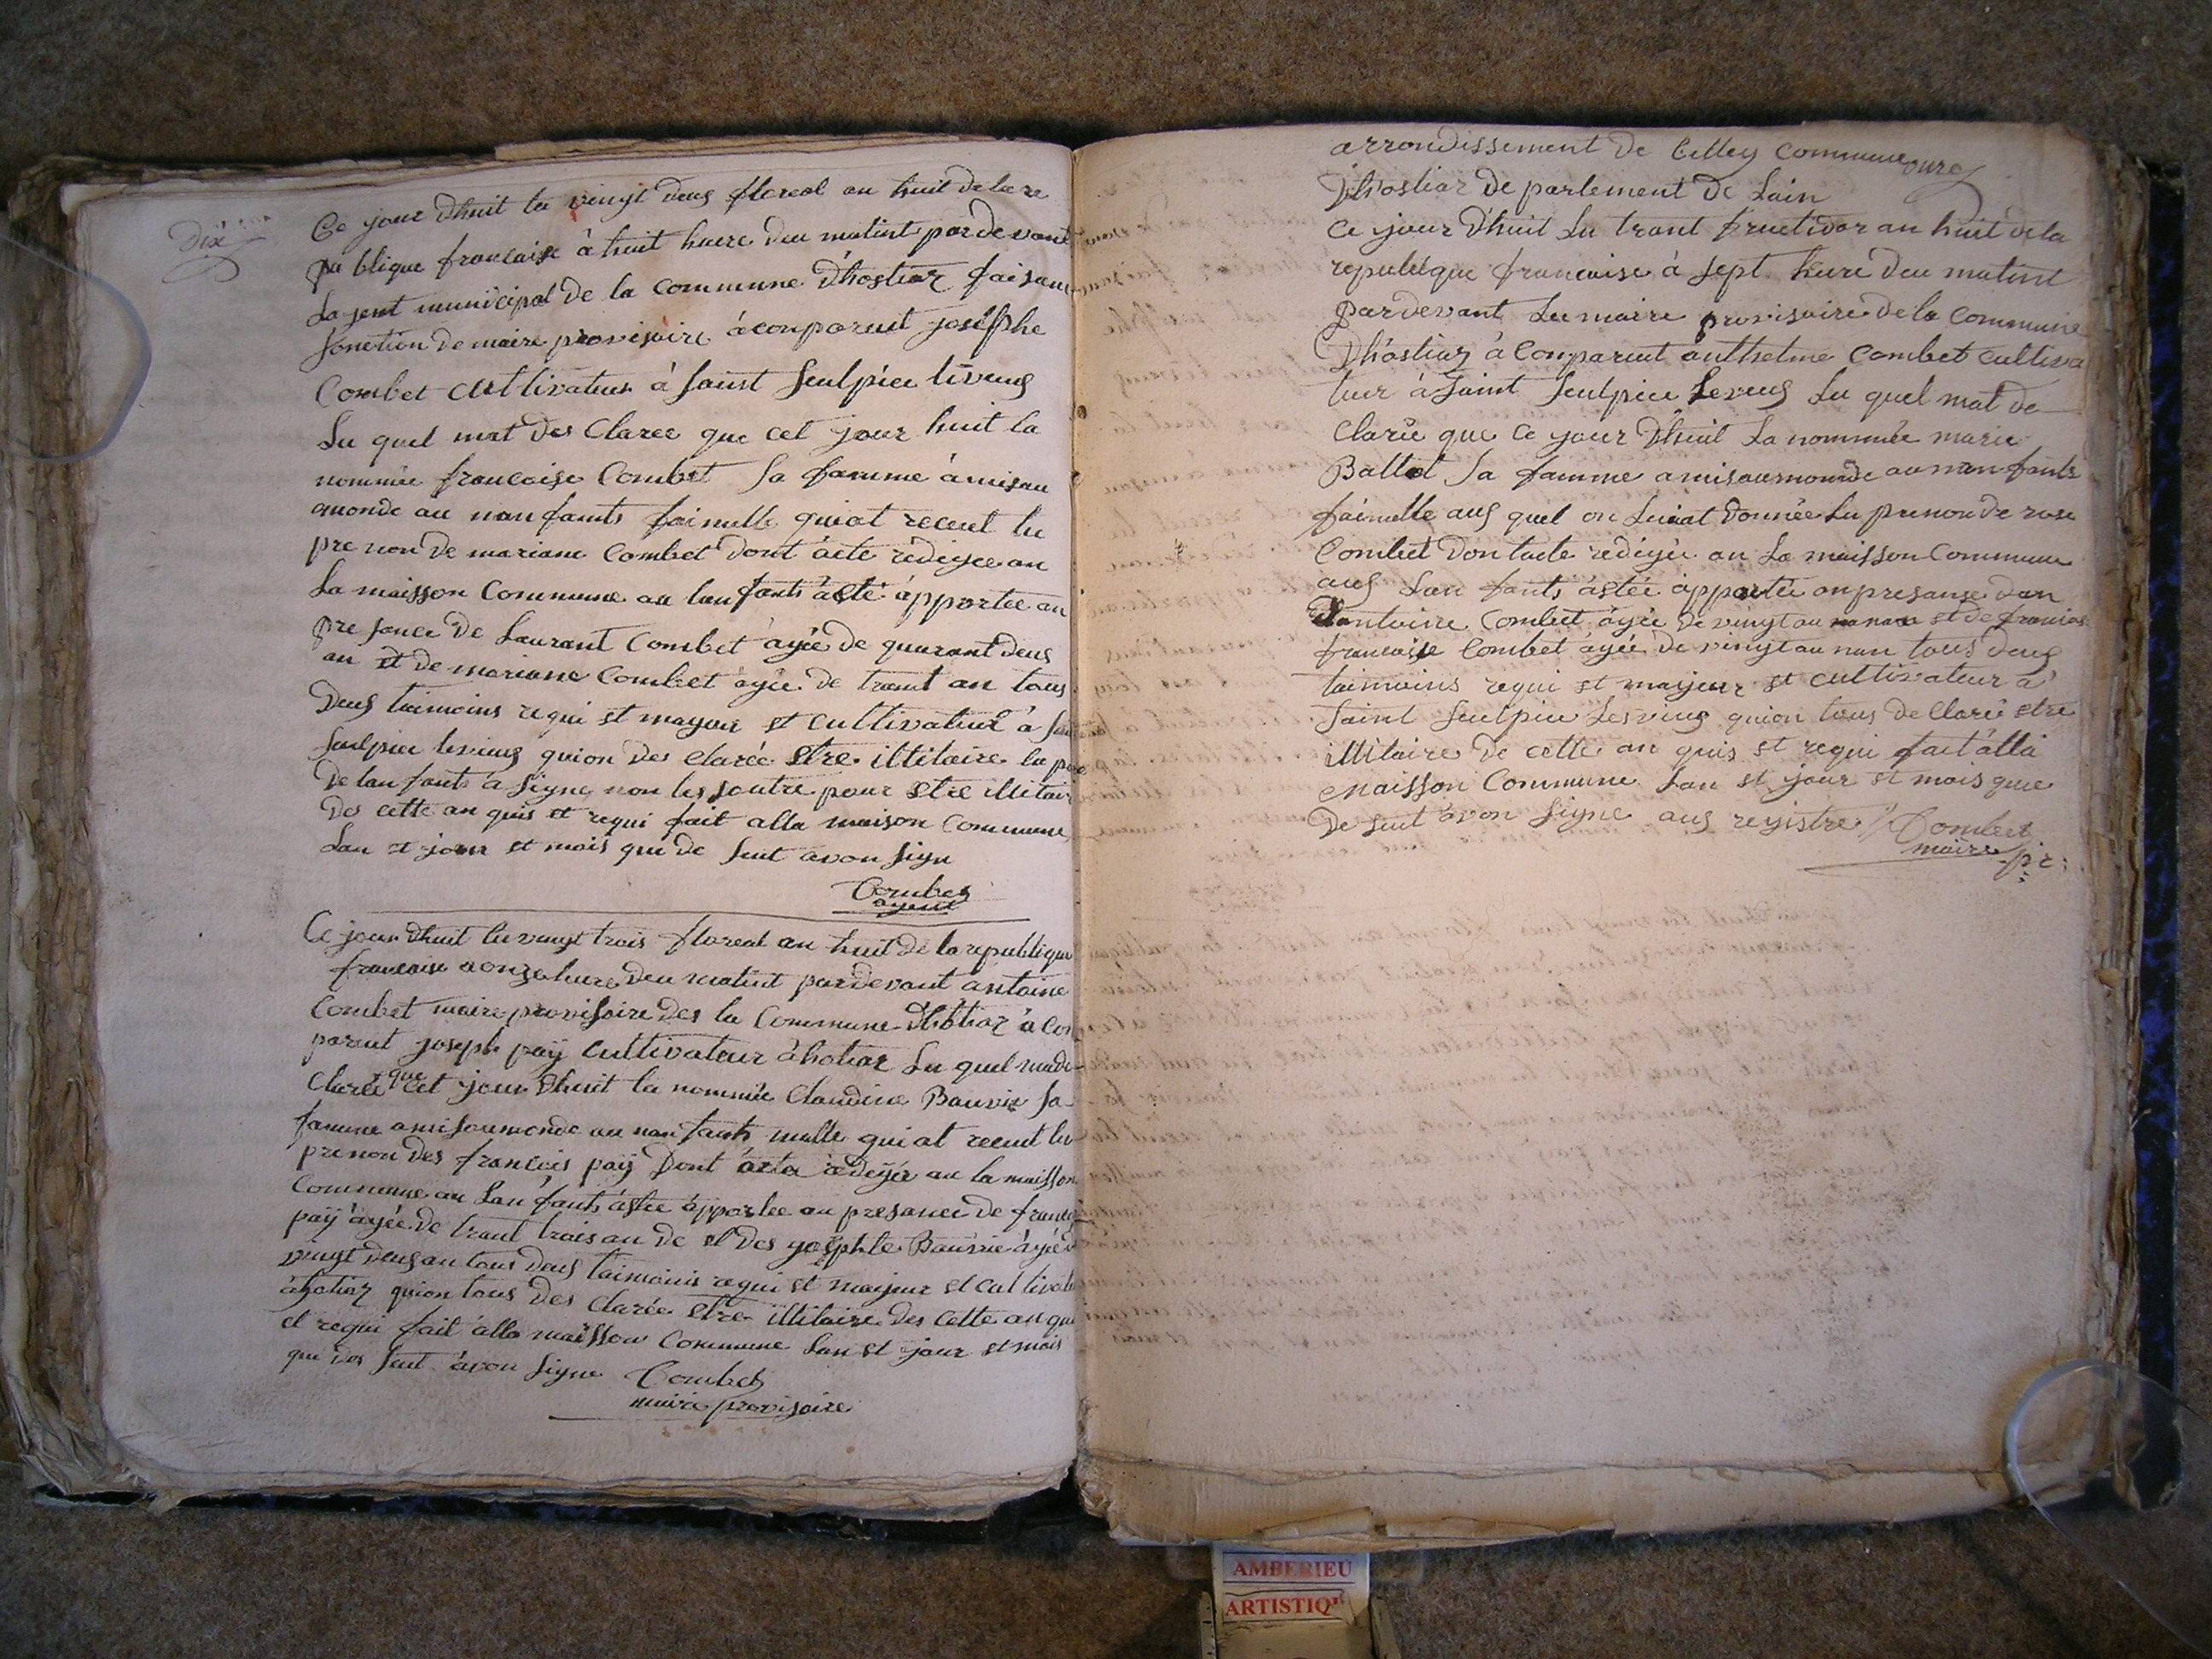 Dix
Ce jour Dhuit le vingt Deus floreal an huit de la re
publique francaise à huit heure deu matint par devant
Lajent municipal De la commune Dhostiaz faisant
fonction De maire provisoire à conparuit josephe
Combet Cultivateur à saint Sulpice
Le quel mat des Claree que cet jour huit la
nommée francoise Combet Sa famme à mis au
monde au nanfants faimelle quiat receut le
pre non de mariane Combet Dont acte redigee an
La maisson Commune ou lanfants àété àpportée an
presance De Laurant Combet àgée de quarant deus
an et de mariane Combet àgée de trant an tous
Deus taimoins requi et mayeur et cultivateur à
Sulpice quion Des clarée Etre illitaire le
De lanfants à Signe non les pour Etre illitaire
Des cette an quis et requi fait alla maison Commune
Lan et jour et mois que De Seut avon Sign
Combet
agent
Ce jour Dhuit le vingt trois floreal an huit de la republique
francaise a onze heure Deu matint par devant antoine
Combet maire provisoire Des la Commune Dhotiaz à con
paruit joseph paÿ cultivateur à hotiaz Le quel made
Claree que cet jour Dhuit la nommée Claudine Sa
famme a mis au monde au nanfants malle quiat receut le
pre non Des francois paÿ Dont acte redigée an la maisson
Commune ou Lanfants àstée àpportee an presance De
paÿ àgée De trant trois an De et Des josephte àgée
vingt deus an tous Deus taimoins requi et mayeur et
àhotiaz quion tous Des Clarée Etre illitaire Des Cette an
et requi fait àlla maisson Commune Lan et jour et mois
que Des Seut avon Signe Combet
maire provisoire
arrondissement De Belley Commune
Dhostiaz De partement De Lain
Ce jour Dhuit Le trant fructidor an huit dela
republique francaise à Sept heure Deu matint
Pardevant Le maire provisoire de la Commune
Dhostiaz à Conparuit anthelme Combet cultiva
teur à Saint Sulpice Le quel mat de
Clarée que Ce jour Dhuit La nommée marie
Ballet Sa famme a mis au monde au nanfants
faimelle aus quel on Luiat Donnée Le prenon De rose
Combet Dont acte redigée an La maisson Commune
aus Lanfants àstée àpportée an presanse Dan
antoine Combet àgée De vingt et de francois
francoise Combet àgée De vingt au nan tous Deus
taimoins requi et mayeur et cultivateur à
Saint Sulpice quion tous De Claré etre
illitaire De cette an quis et requi fait àlla
Maisson Commune Lan et jour et mois que
De Seut avon Signe aus registre Combet
maire